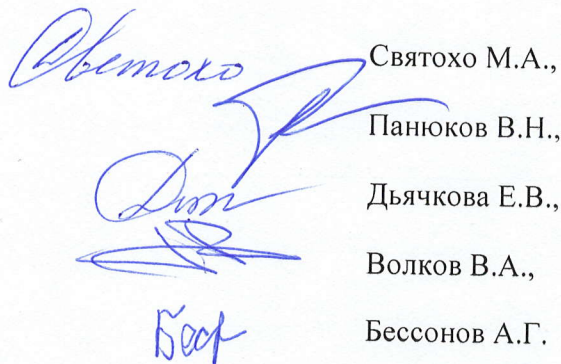 Святохо М.А.,
Панюков В.Н.,
Дьячкова Е.В.,
Волков В.А.,
Бессонов А.Г.